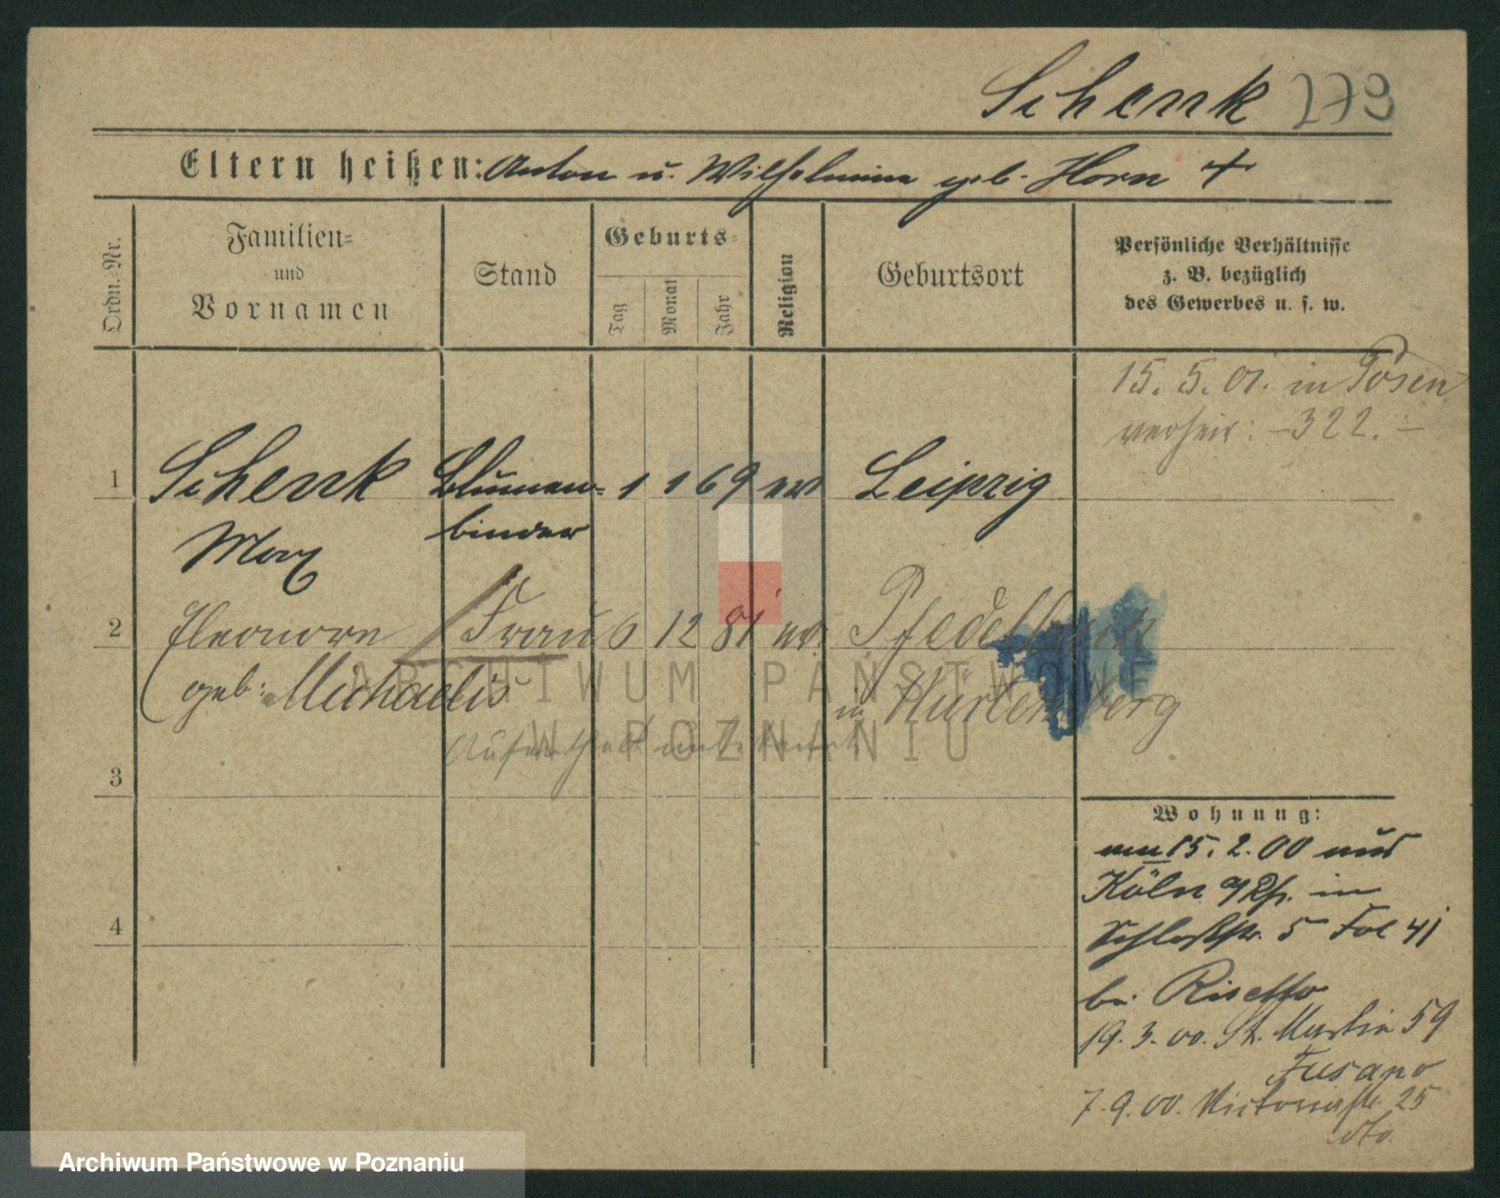 Schenk 273
Eltern heißen: Anton u. Wilhelmine geb. Horn +
Ordn.-Nr.
Familien-
und
Vornamen
Stand
Geburts-
Tag
Monat
Jahr
Religion
Geburtsort
Persönliche Verhältnisse
z. B. bezüglich
des Gewerbes u. s. w.
15. 5. 01. in Posen
verheir: -322.-
1 Schenk Blumen- 1 1 69 ev Leipzig
Max binder
2 Eleonore Frau 6 12 81 ev.
geb: Michaelis in Würtemberg
Aufenthalt unbekannt
3
4
Wohnung:
am 15. 2. 00 aus
Köln a/Rh. in
Schloßstr. 5 Fol 41
bei
19. 3. 00. St. Martin 59
7. 9. 00. Victoriastr. 25
dto
ARCHIWUM PAŃSTWOWE
W POZNANIU
Archiwum Państwowe w Poznaniu